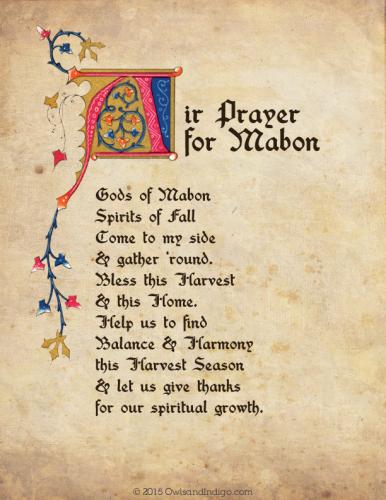 Air Prayer
for Mabon
Gods of Mabon
Spirits of Fall
Come to my side
& gather 'round.
Bless this Harvest
& this Home.
Help us to find
Balance & Harmony
this Harvest Season
& let us give thanks
for our spiritual growth.
© 2015 OwlsandIndigo.com